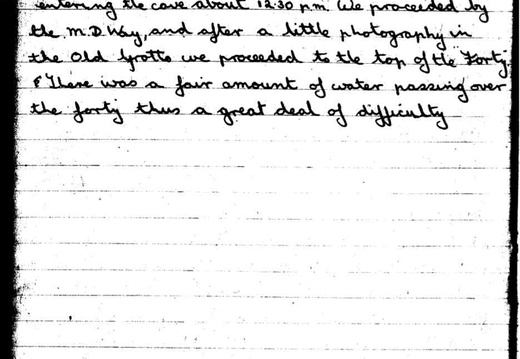 entering the cave about 12.30 p.m. We proceeded by
the M.D. Way, and after a little photography in
the Old Grotto we proceeded to the top of the Forty.
& There was a fair amount of water passing over
the forty thus a great deal of difficulty